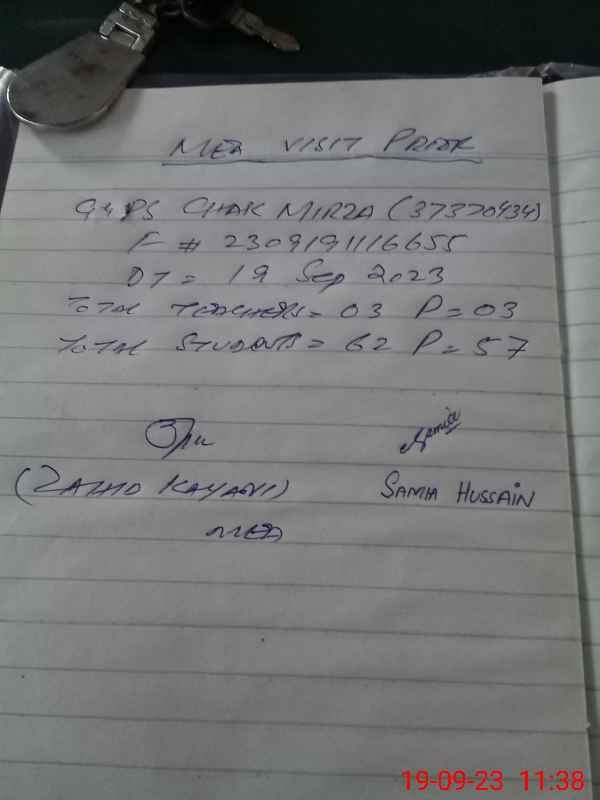 MEA VISIT PROOF
GGPS CHAK MIRZA (37370434)
F # 2309191116655
DT = 19 Sep 2023
TOTAL TEACHERS = 03 P = 03
TOTAL STUDENTS = 62 P = 57
Samia
(ZAHID KAYANI) SAMIA HUSSAIN
MEA
19-09-23 11:38